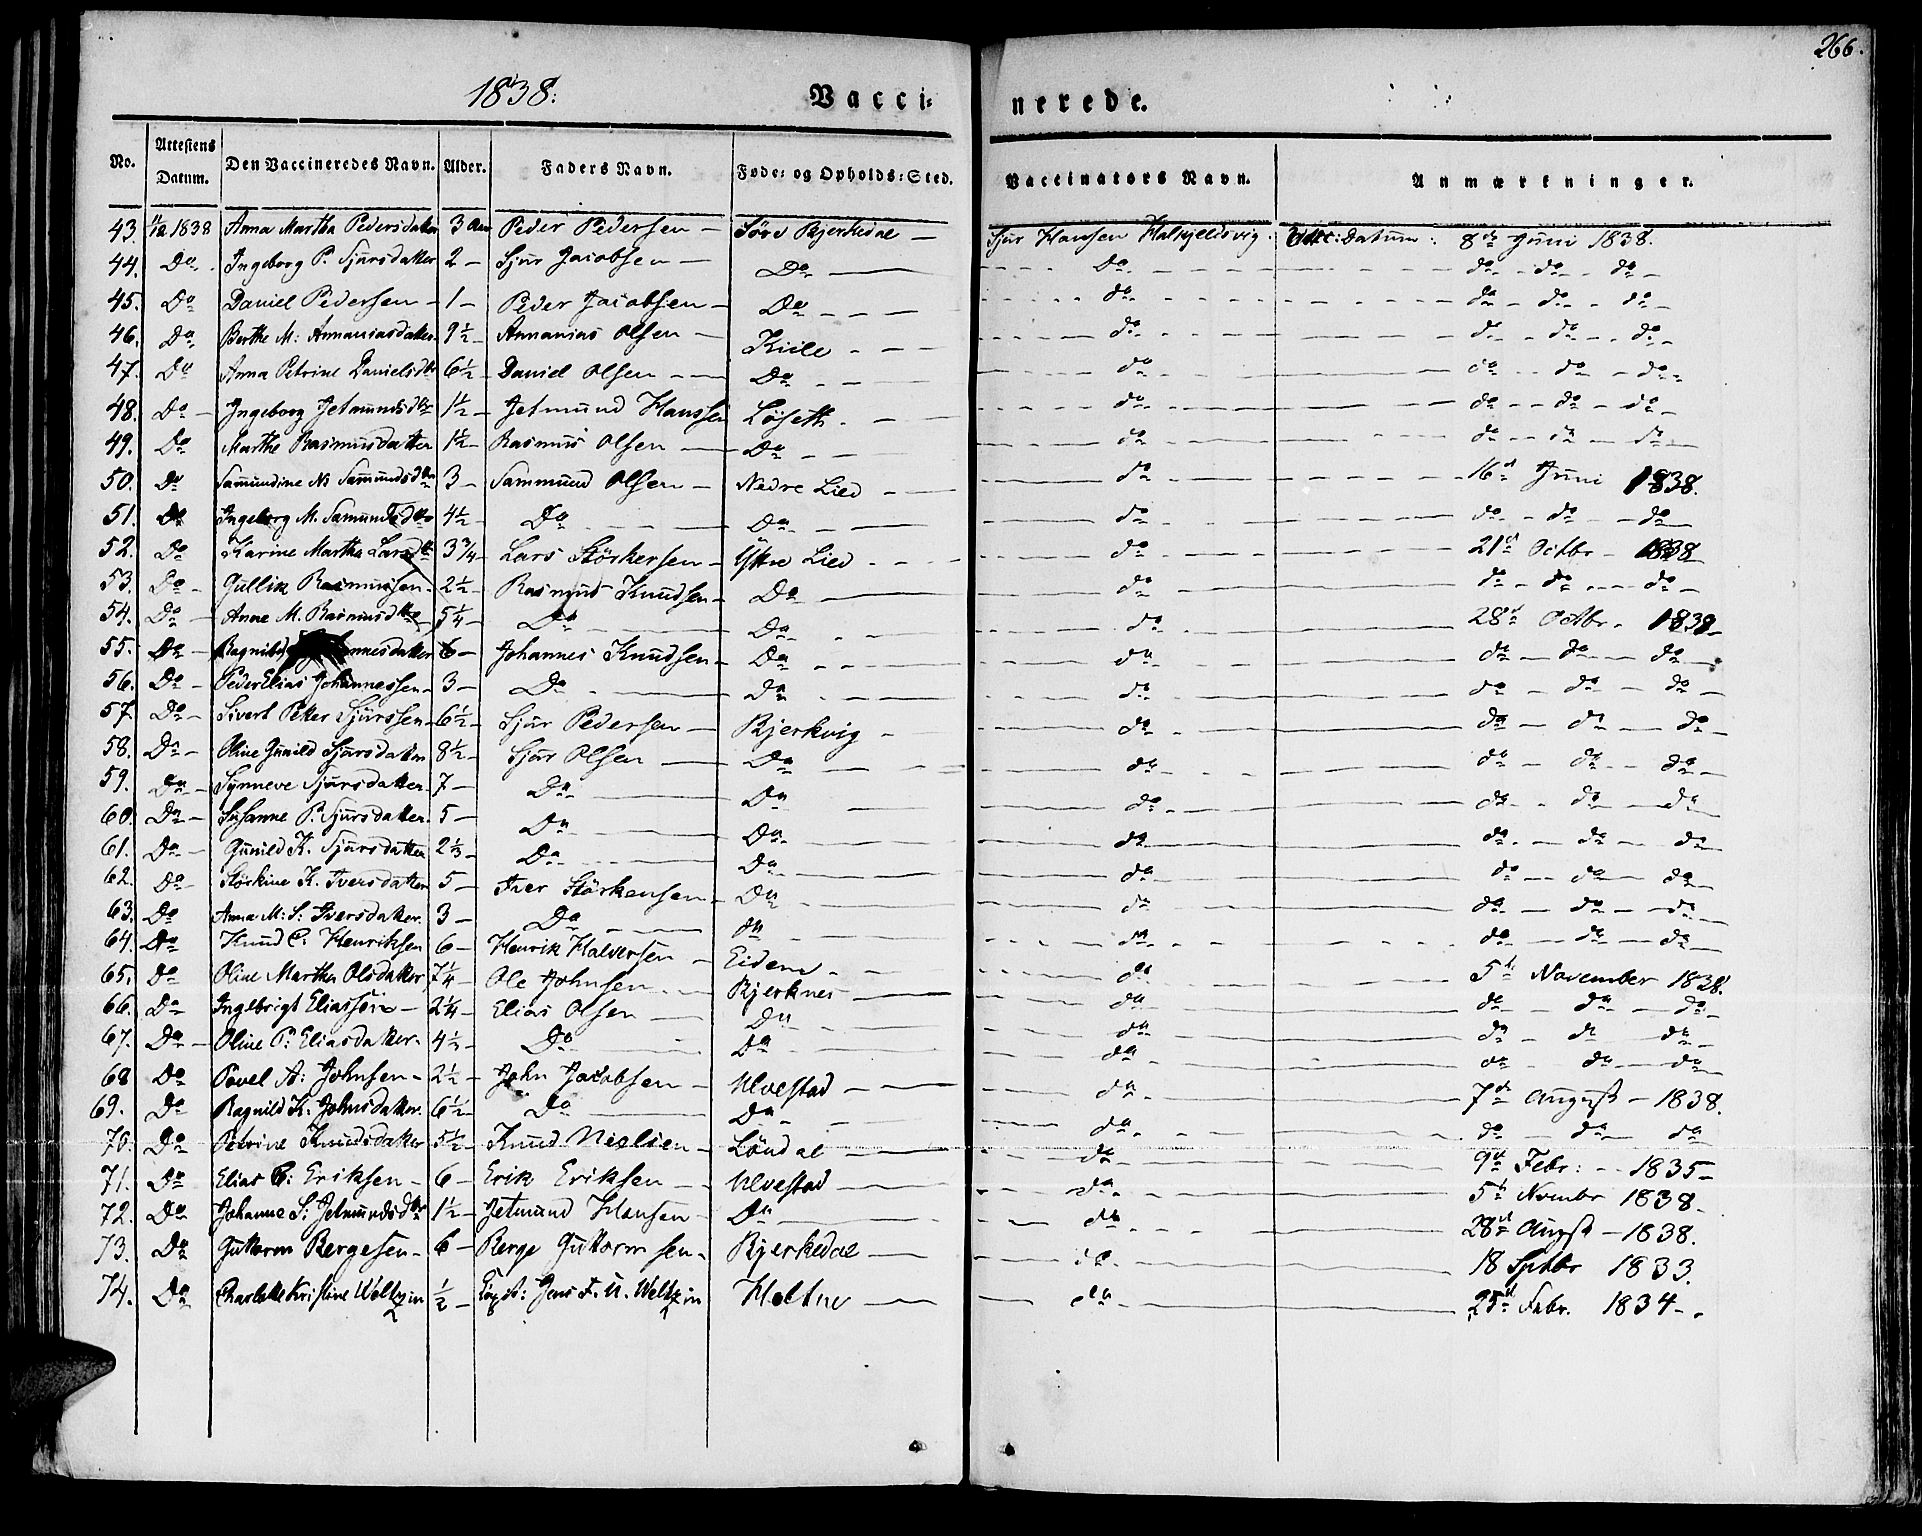 266.
1838. Vacci=nerede.
No. Attestens Datum. Den Vaccineredes Navn. Alder. Faders Navn. Føde= og Opholds=Sted. Vaccinators Navn. Anmærkninger.
43. 11/12 1838 Anna Martha Pedersdatter 3 Peder Pedersen — Søre Bjerkedal — Sjur Hansen : Datum: 8de Juni 1838.
44. Do. Ingeborg P. Sjursdatter 2 — Sjur Jacobsen — Do — Do. do do do
45. Do Daniel Pedersen — 1 — Peder Jacobsen — Do do do do do
46. Do Berthe M: Annaniasdatter 9½ — Annanias Olsen — Kiile do do do do
47. Do Anna Petrine Danielsdtr 6½ — Daniel Olsen — Do do do do do
48. Do — Ingeborg Jetmundsdtr 1½ — Jetmund Hanssen Løseth. do do do do
49. Do Marthe Rasmusdatter 1½ — Rasmus Olsen — Do do do do do
50. Do Samundine N Samundsdtr 3 — Sammund Olsen — Nedre Lied do 16de Juni 1838.
51. Do Ingeborg M. Samundsdtr 4½ — Do Do do do do do
52. Do Karine Martha Larsdtr 3¾ — Lars Störkersen — Ytre Lied do 21de Octbr — 1838
53. Do — Gullik Rasmussen — 2½ — Rasmus Knudsen — Do do do do do
54. Do — Anne M. Rasmusdtr 5¼ — Do Do do 28de Octbr. 1838 —
55. Do — 6 — Johannes Knudsen — Do do do do do
56. Do — Peder Elias Johannessen — 3 — Do do do do do do
57. Do — Sivert Petter Sjurssen — 6½ — Sjur Pedersen — Bjerkvig do do do do
58. Do — Oline Gunild Sjursdatter 8½ — Sjur Olsen — Do do do do do
59. Do — Synneve Sjursdatter 7 — Do Do do do do do
60. Do — Susanne P. Sjursdatter 5 — Do Do do do do do
61. Do — Gunild K. Sjursdatter 2⅓ — Do Do do do do do
62. Do Störkine K. Iversdatter 5 — Iver Störkersen — Do do do do do
63. Do Anna M: S: Iversdatter. 3 — Do do do do do do
64. Do Knud P. Henriksen 6 — Henrik Halversen — do do do do
65. Do Oline Martha Olsdatter 7¼ — Ole Johnsen — Bjerknes do 5de November 1838.
66. Do Ingebrigt Eliassen — 2¼ — Elias Olsen — Do do do do do
67. Do — Oline P: Eliasdatter. 4½ — Do Do do do do do
68 Do Povel A: Johnsen — 2½ — John Jacobsen — Ulvestad — do do do do
69. Do Ragnild K. Johnsdatter. 6½ — Do Do do 7de August — 1838.
70. Do Petrine Knudsdatter 5½ — Knud Nielsen — Löndal do do do do
71. Do Elias P: Eriksen — 6 — Erik Eriksen — Ulvestad do 9de Febr: — 1835 —
72. Do Johanne S: Jetmundsdtr 1½ — Jetmund Hansen Do do 5te Novembr 1838.
73. Do Guttorm Bergesen — 6 — Berge Guttormsen — Bjerkedal — do 28de August — 1838.
18 Sptbr 1833.
74. Do Charlotte Kristine Weltzin ½ — Capit: Jens F. U. Weltzin Holtne — do 25de Febr. 1834 —